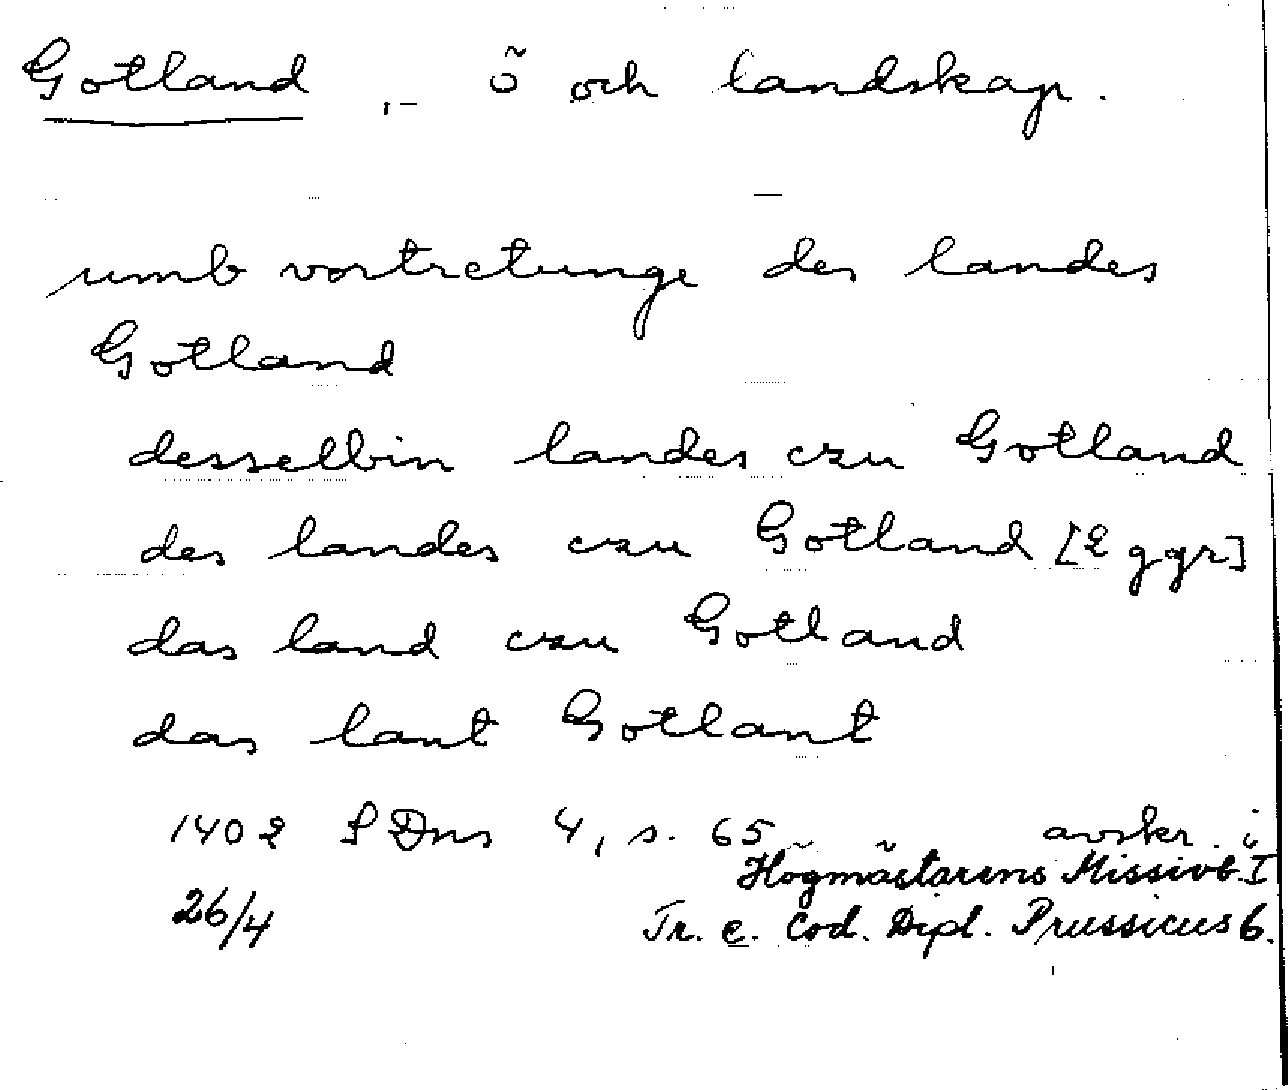 Gotland,- ö och landskap.
umb vortretunge des landes
Gotland
desselbin landes czu Gotland
des landes czu Gotland [2 ggr]
das land czu Gotland
das lant Gotlant
1402 SDns 4, s. 65 avskr. i
Högmästarens Missivb. I
26/4 Tr. e. Cod. Dipl. Prussicus 6.